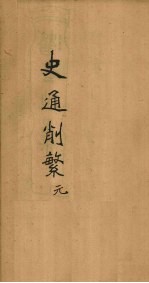 史通削繁
元